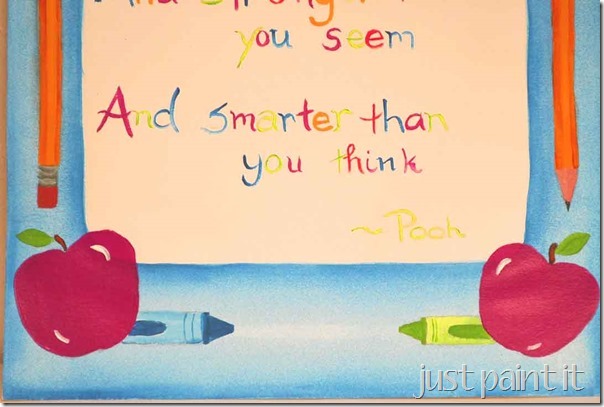 And stronger
you seem
And smarter than
you think
~Pooh
just paint it